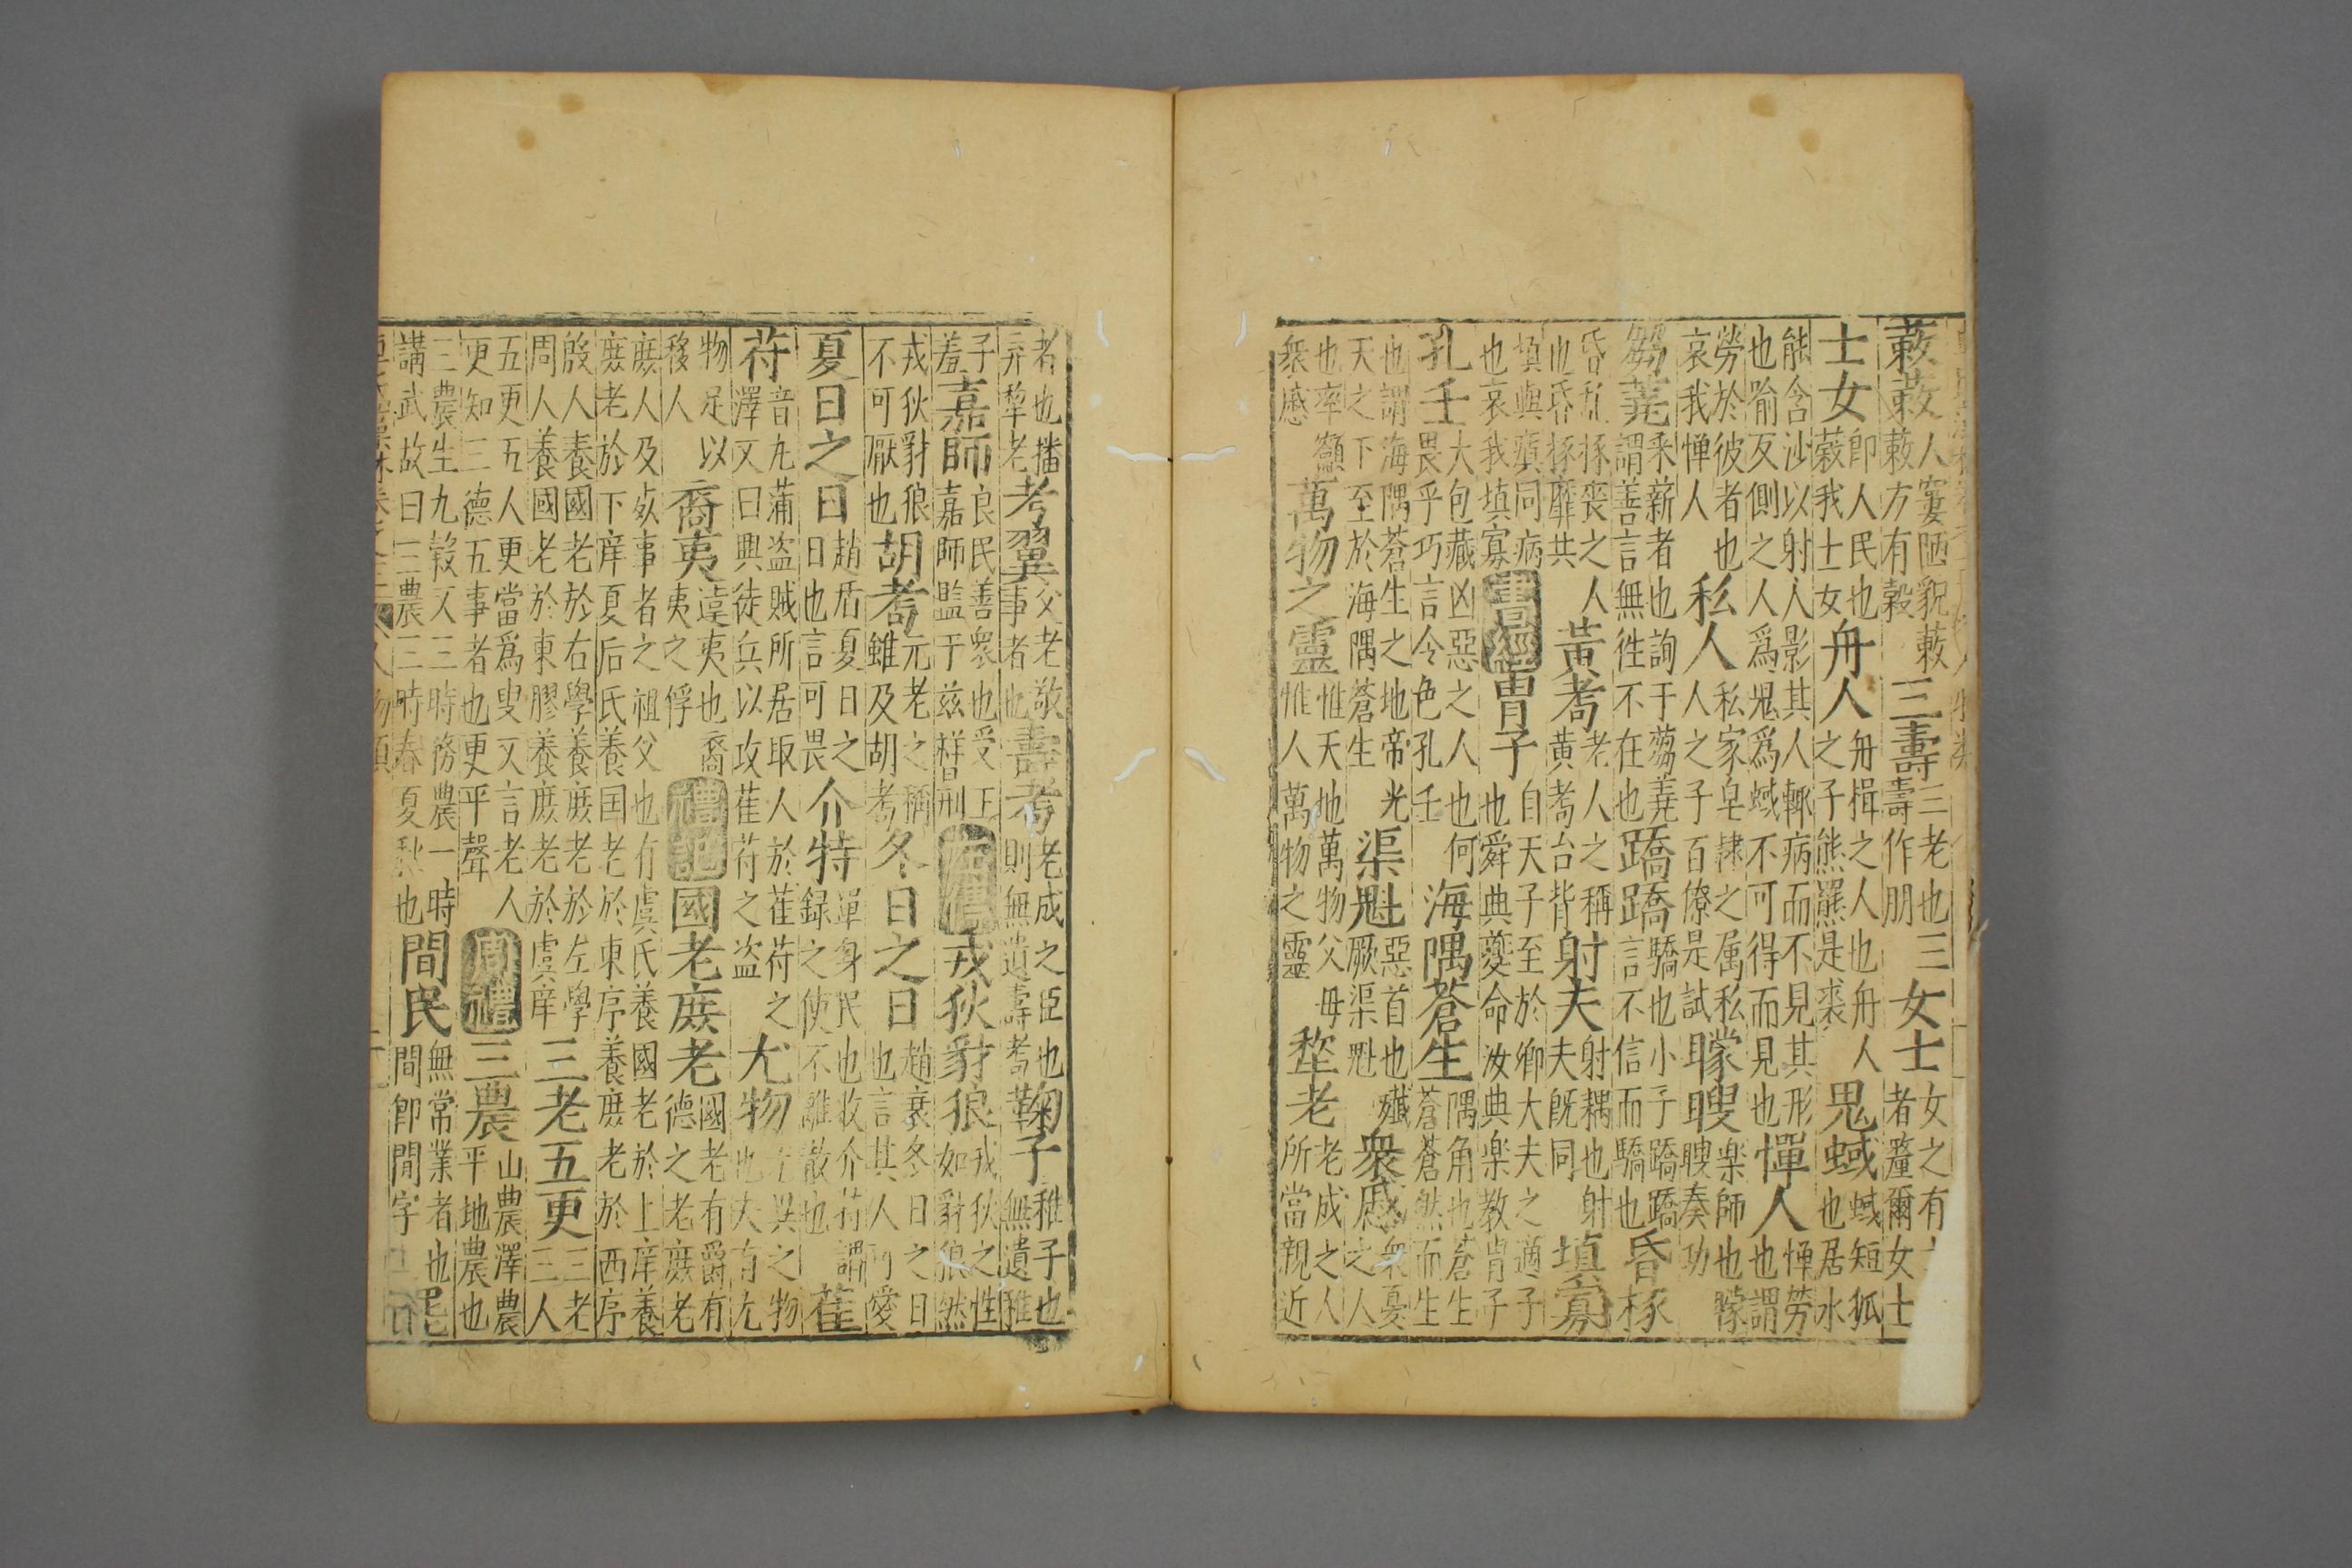 蔌蔌人窶陋貌蔌蔌方有穀三壽三老也三壽作朋女士女之有者釐爾女士
士女即人民也穀我士女舟人舟楫之人也舟人之子熊羆是裘鬼蜮蜮短狐也居水
能含沙以射人影其人輙病而不見其形也喻反側之人爲鬼爲蜮不可得而見也憚人憚劳也謂
勞於彼者也哀我憚人私人私家皂隸之属私人之子百僚是試矇瞍楽師也矇瞍奏功
蒭蕘采薪者也詢于蒭蕘謂善言無徃不在也蹻蹻驕也小子蹻蹻言不信而驕也昏椓
昏椓椓喪之人也昏椓靡共黃耈老人之稱黄耈台背射夫射耦也射夫既同填寡
填與瘨同病也哀我填寡書經胄子自天子至於卿大夫之適子也舜典夔命汝典楽教胄子
孔壬大包藏凶惡之人也何畏乎巧言令色孔壬海隅蒼生隅角也蒼生蒼蒼然而生
也謂海隅蒼生之地帝光天之下至於海隅蒼生渠魁惡首也殲厥渠魁衆慼衆憂之人
也率籲衆慼萬物之靈惟天地萬物父母惟人萬物之靈犂老老成之人所當親近
者也播弃犂老考翼父老敬事者也壽耇老成之臣也則無遺壽耇鞠子稚子也無遺稚
子羞嘉師良民善衆也受王嘉師監于兹祥刑左傳戎狄豺狼戎狄之性如豺狼然
戎狄豺狼不可厭也胡耈元老之稱雖及胡耈冬日之日趙衰冬日之日也言其人可愛
夏日之日趙盾夏日之日也言可畏介特單身民也收介特謂録之使不離散也萑
苻音九蒲盗賊所居取人於萑苻之澤又曰興徒兵以攻萑苻之盗尤物尤異之物也夫有尤
物足以移人裔夷違夷也裔夷之俘禮記國老庶老國老有爵有德之老庶老
庶人及死事者之祖父也有虞氏養國老於上庠養庶老於下庠夏后氏養国老於東序養庶老於西序
殷人養國老於右學養庶老於左學周人養國老於東膠養庶老於虞庠三老五更三老三人
五更五人更當爲叟又言老人更知三德五事者也更平聲周禮三農山農澤農平地農也
三農生九穀又三時務農一時講武故曰三農三時春夏秋也間民無常業者也間即閒字